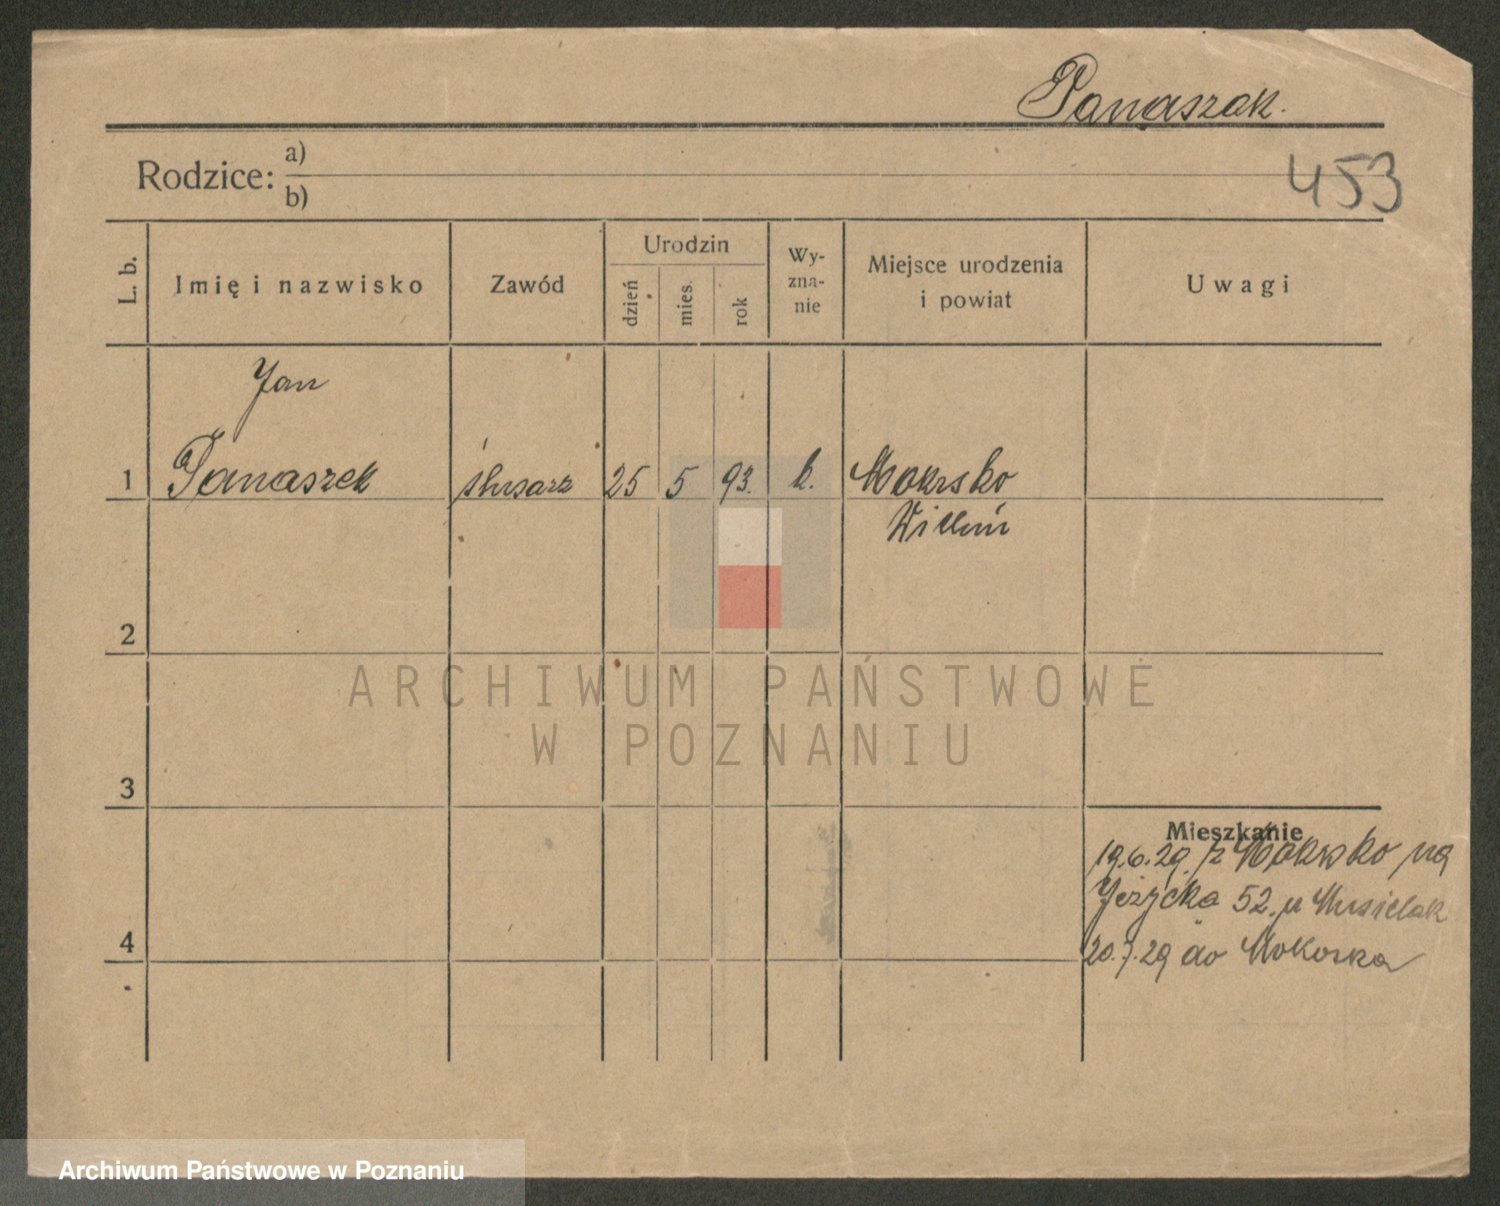 Panaszak.
453
Rodzice: a)
b)
L. b.
Imię i nazwisko
Zawód
Urodzin
dzień
mies.
rok
Wy-
zna-
nie
Miejsce urodzenia
i powiat
Uwagi
Jan
1 Panaszek ślusarz 25 5 93. k. Mokrsko
Wieluń
2
ARCHIWUM PAŃSTWOWE
W POZNANIU
3
Mieszkanie
19.6.29. z Mokrsko na
Jeżycka 52. u Musielak
4
20.7.29 do Mokrska
Archiwum Państwowe w Poznaniu